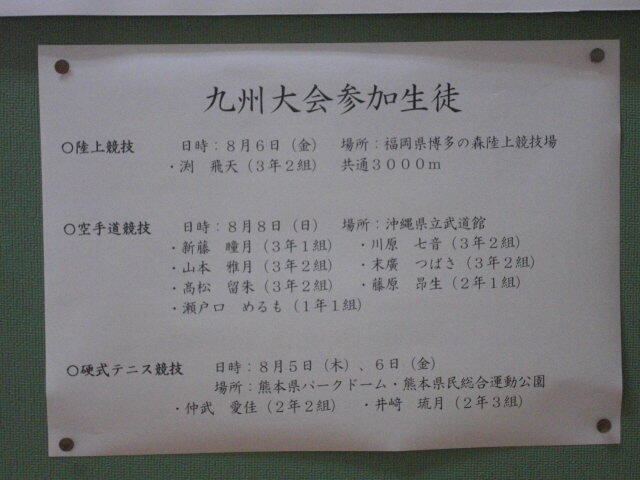 九州大会参加生徒
○陸上競技　日時：８月６日（金）　場所：福岡県博多の森陸上競技場
・渕　飛天（３年２組）　共通３０００ｍ
○空手道競技　日時：８月８日（日）　場所：沖縄県立武道館
・新藤　瞳月（３年１組）　・川原　七音（３年２組）
・山本　雅月（３年２組）　・末廣　つばさ（３年２組）
・髙松　留朱（３年２組）　・藤原　昂生（２年１組）
・瀬戸口　めるも（１年１組）
○硬式テニス競技　日時：８月５日（木）、６日（金）
場所：熊本県パークドーム・熊本県民総合運動公園
・仲武　愛佳（２年２組）　・井﨑　琉月（２年３組）